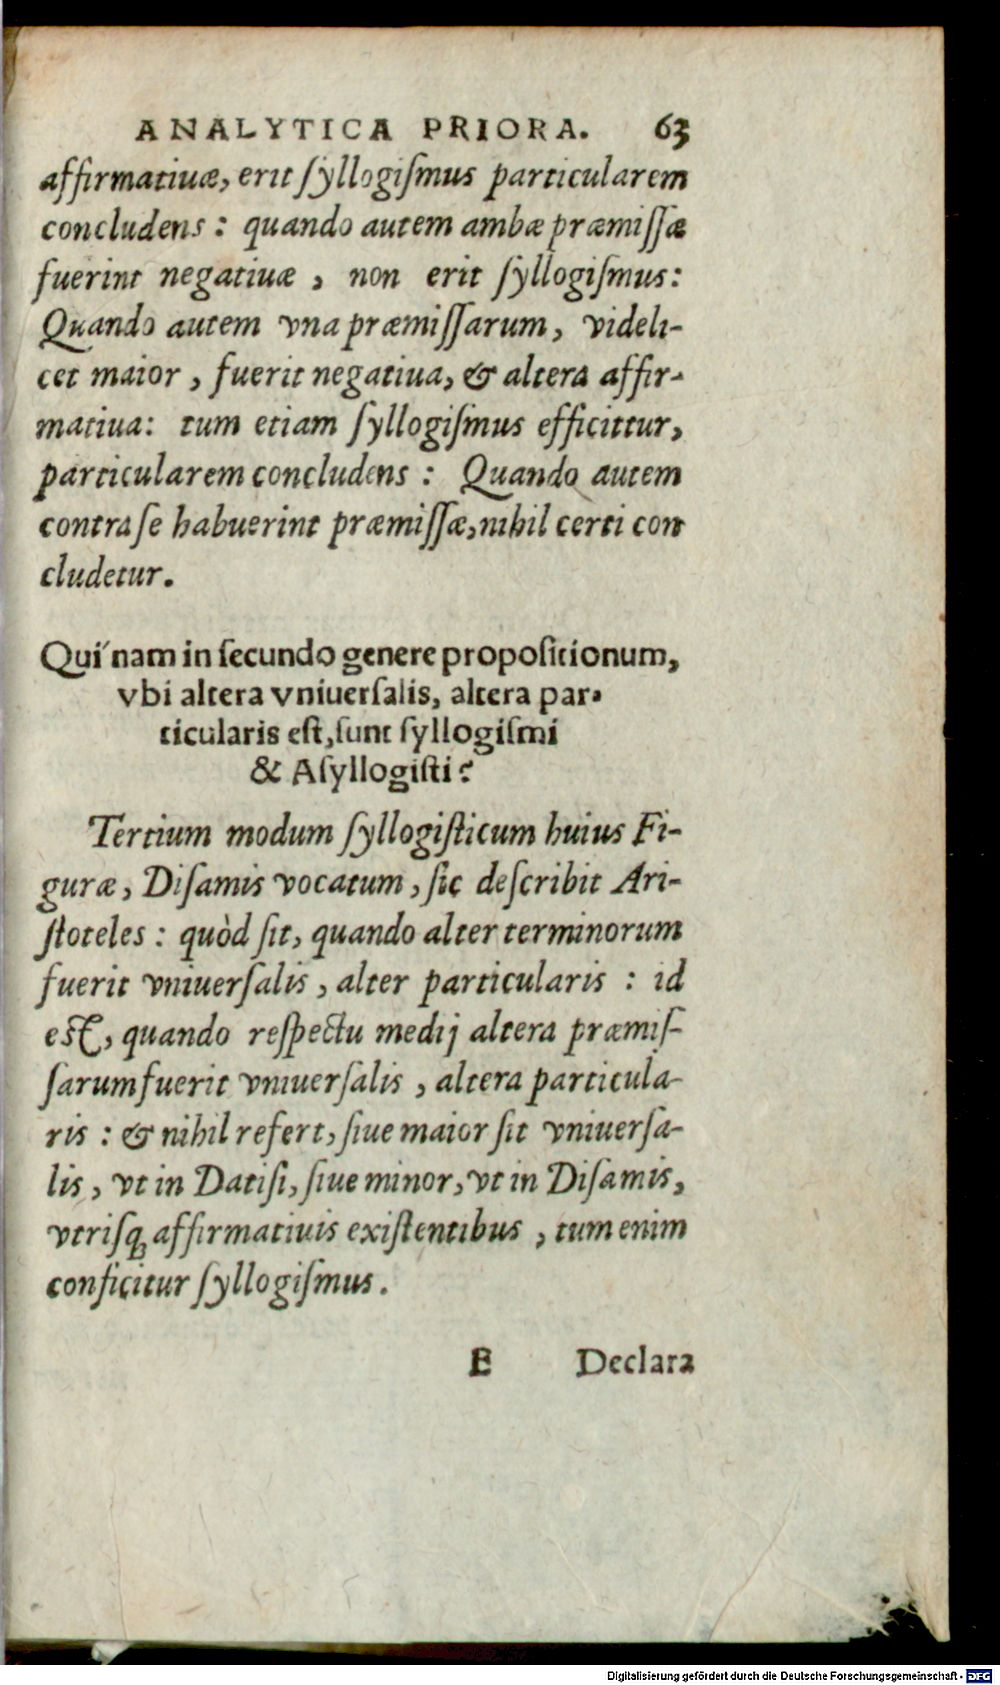 ANALYTICA PRIORA. 63
affirmatiuæ, erit ſyllogiſmus particularem
concludens : quando autem ambæ præmiſſæ
fuerint negatiuæ , non erit ſyllogiſmus:
Quando autem vna præmiſſarum, videli-
cet maior , fuerit negatiua, & altera affir-
matiua: tum etiam ſyllogiſmus efficittur,
particularem concludens : Quando autem
contra ſe habuerint præmiſſæ, nihil certi con
cludetur.
Qui'nam in ſecundo genere propoſitionum,
vbi altera vniuerſalis, altera par-
ticularis eſt, ſunt ſyllogiſmi
& Aſyllogiſti?
Tertium modum ſyllogiſticum huius Fi-
guræ, Diſamis vocatum, ſic deſcribit Ari-
ſtoteles : quòd ſit, quando alter terminorum
fuerit vniuerſalis , alter particularis : id
eſt, quando reſpectu medij altera præmiſ-
ſarum fuerit vniuerſalis , altera particula-
ris : & nihil refert, ſiue maior ſit vniuerſa-
lis , vt in Datiſi, ſiue minor, vt in Diſamis,
vtriſq; affirmatiuis exiſtentibus , tum enim
conficitur ſyllogiſmus.
E Declara
Digitalisierung gefördert durch die Deutsche Forschungsgemeinschaft - DFG